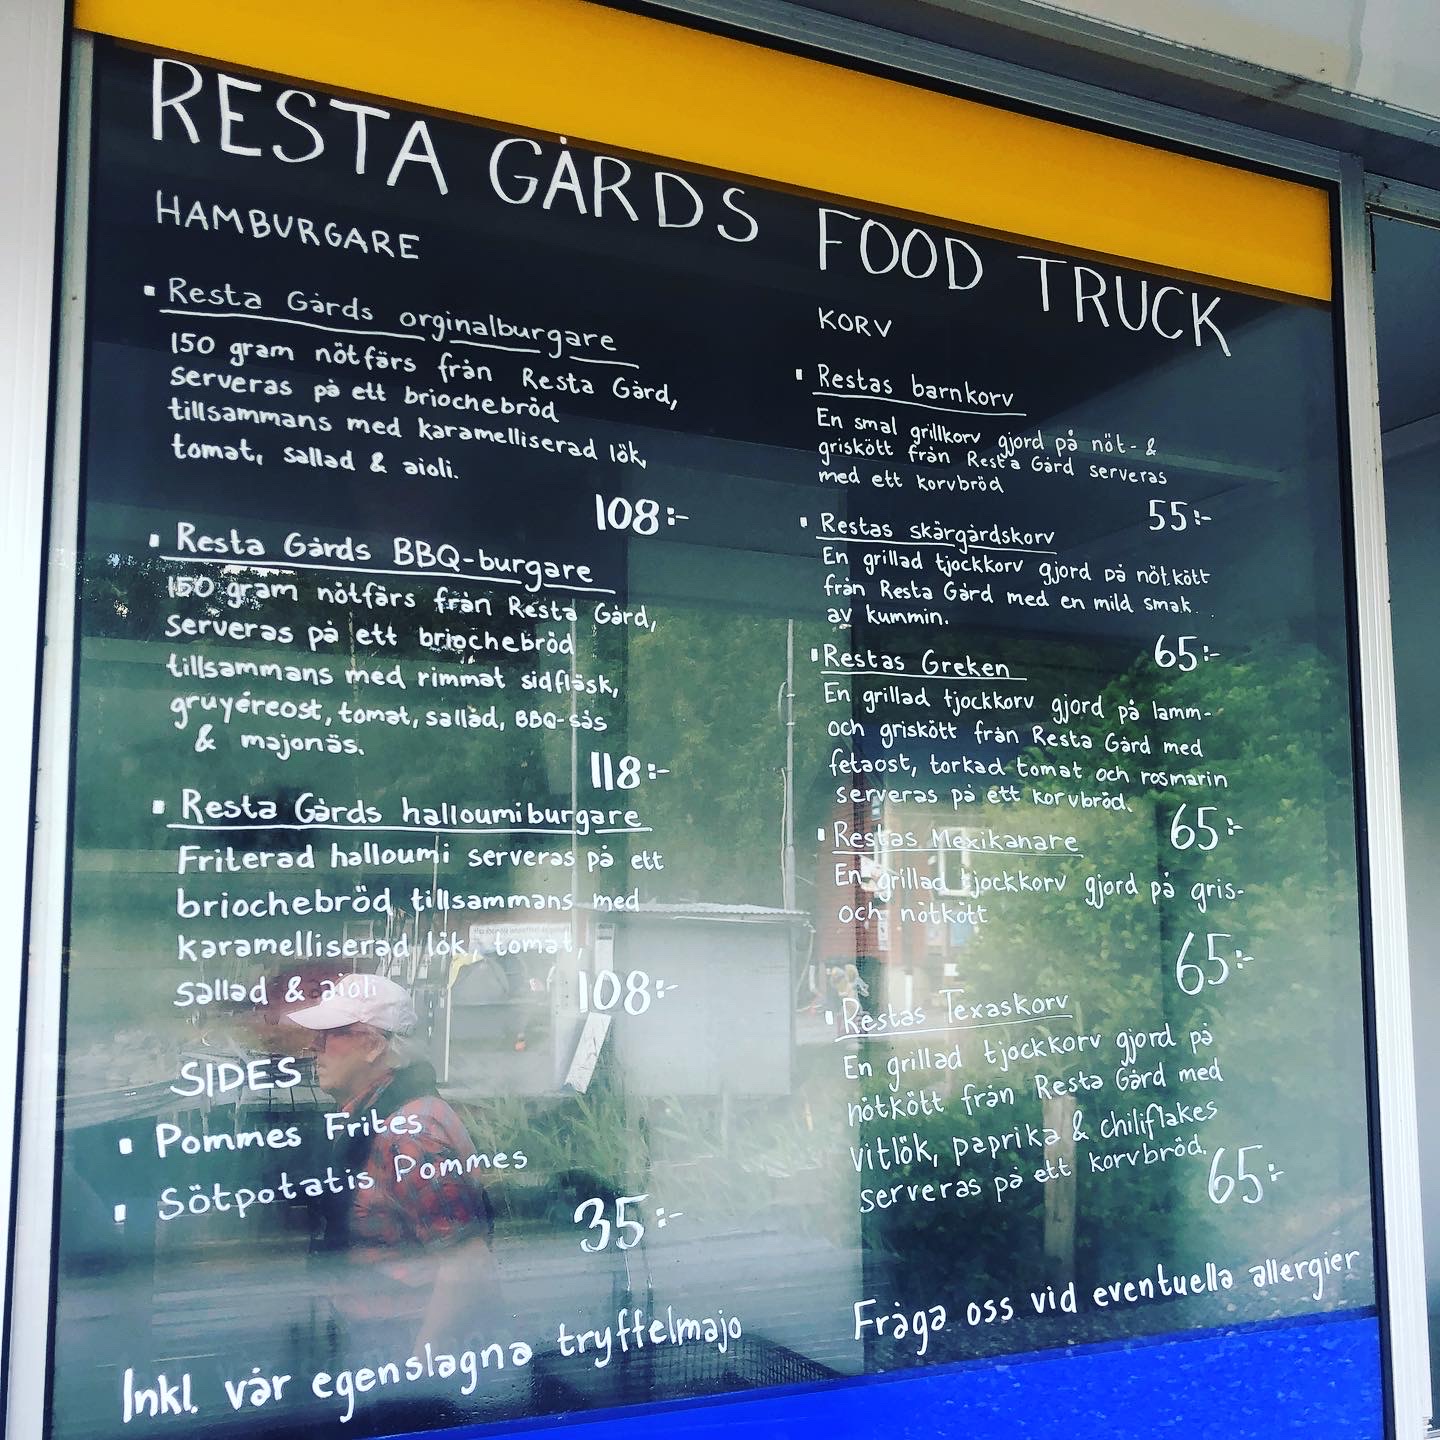 RESTA GÅRDS FOOD TRUCK
HAMBURGARE
▪ Resta Gårds orginalburgare
150 gram nötfärs från Resta Gård,
serveras på ett briochebröd
tillsammans med karamelliserad lök,
tomat, sallad & aioli.
108:-
▪ Resta Gårds BBQ-burgare
150 gram nötfärs från Resta Gård,
serveras på ett briochebröd
tillsammans med rimmat sidfläsk,
gruyéreost, tomat, sallad, BBQ-sås
& majonäs.
118:-
▪ Resta Gårds halloumiburgare
Friterad halloumi serveras på ett
briochebröd tillsammans med
karamelliserad lök, tomat,
sallad & aioli
108:-
SIDES
▪ Pommes Frites
▪ Sötpotatis Pommes
35:-
Inkl. vår egenslagna tryffelmajo
KORV
▪ Restas barnkorv
En smal grillkorv gjord på nöt- &
griskött från Resta Gård serveras
med ett korvbröd
55:-
▪ Restas skärgårdskorv
En grillad tjockkorv gjord på nötkött
från Resta Gård med en mild smak
av kummin.
65:-
▪ Restas Greken
En grillad tjockkorv gjord på lamm-
och griskött från Resta Gård med
fetaost, torkad tomat och rosmarin
serveras på ett korvbröd.
65:-
▪ Restas Mexikanare
En grillad tjockkorv gjord på gris-
och nötkött
65:-
▪ Restas Texaskorv
En grillad tjockkorv gjord på
nötkött från Resta Gård med
vitlök, paprika & chiliflakes
serveras på ett korvbröd.
65:-
Fråga oss vid eventuella allergier